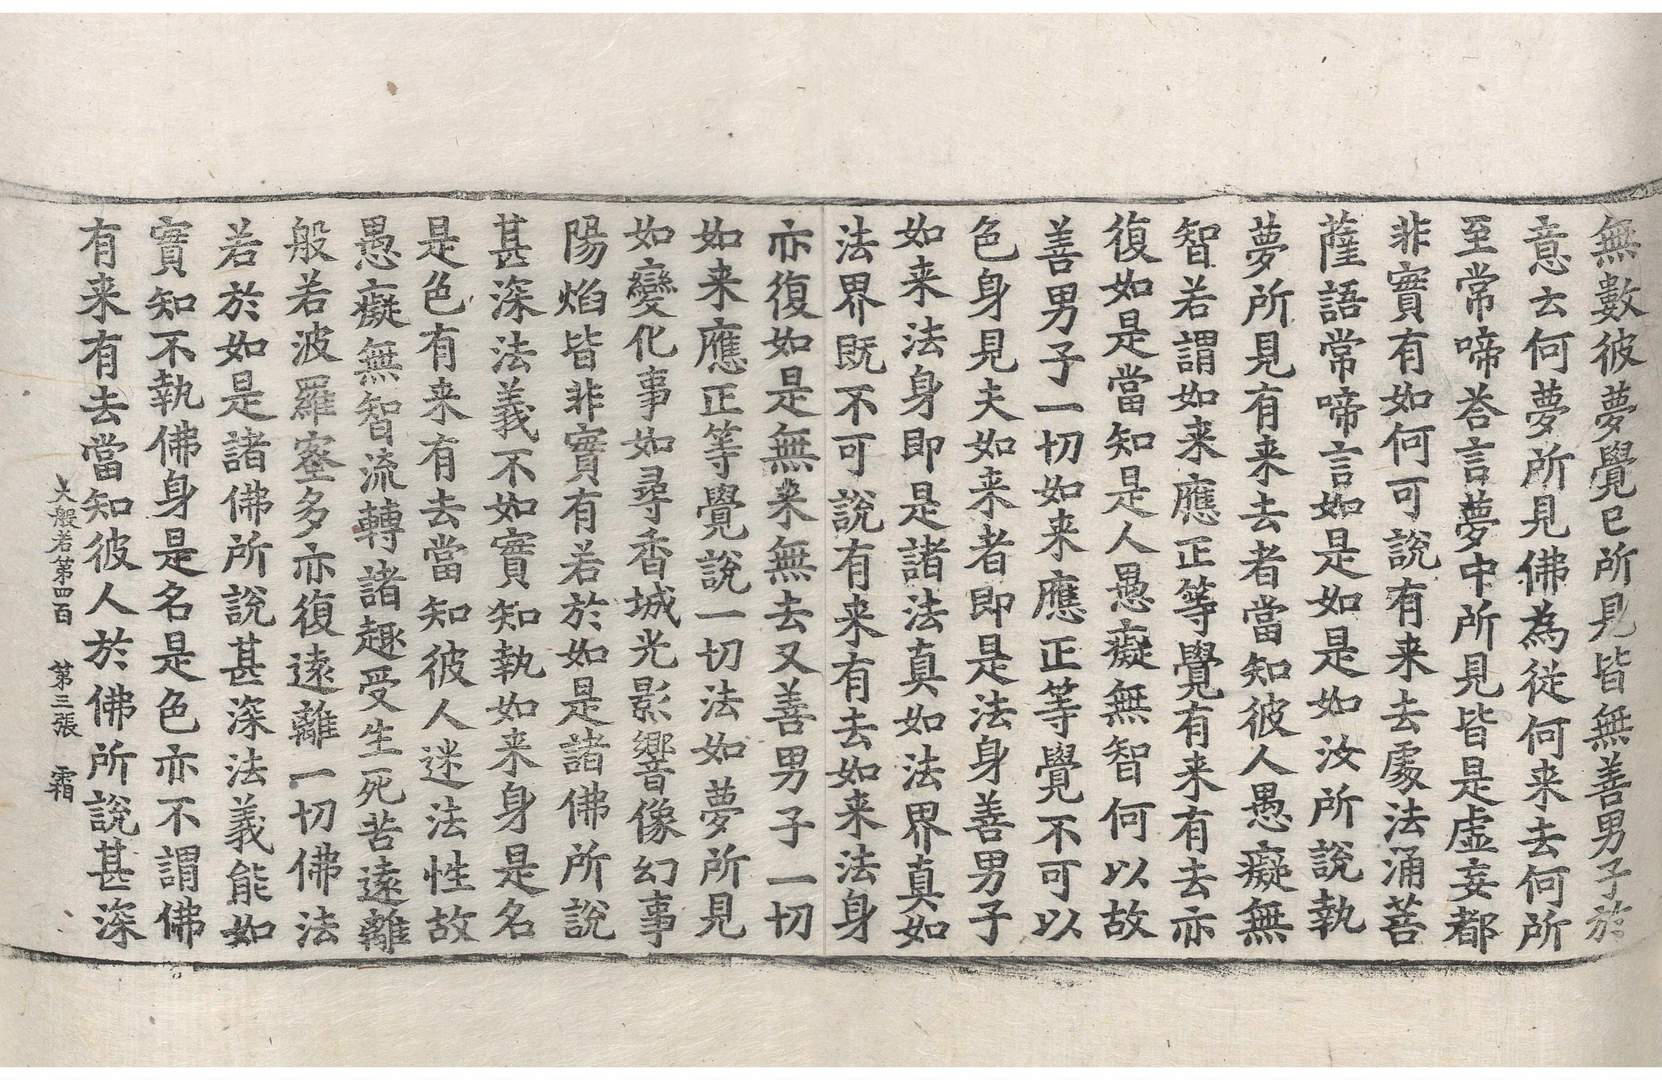 無數彼夢覺已所見皆無善男子於
意云何夢所見佛為從何来去何所
至常啼荅言夢中所見皆是虛妄都
非實有如何可說有来去處法涌菩
薩語常啼言如是如是如汝所說執
夢所見有来去者當知彼人愚癡無
智若謂如来應正等覺有来有去亦
復如是當知是人愚癡無智何以故
善男子一切如来應正等覺不可以
色身見夫如来者即是法身善男子
如来法身即是諸法真如法界真如
法界既不可說有来有去如来法身
亦復如是無来無去又善男子一切
如来應正等覺說一切法如夢所見
如變化事如尋香城光影響像幻事
陽焰皆非實有若於如是諸佛所說
甚深法義不如實知執如来身是名
是色有来有去當知彼人迷法性故
愚癡無智流轉諸趣受生死苦遠離
般若波羅蜜多亦復遠離一切佛法
若於如是諸佛所說甚深法義能如
實知不執佛身是名是色亦不謂佛
有来有去當知彼人於佛所說甚深
大般若第四百　第三張　霜